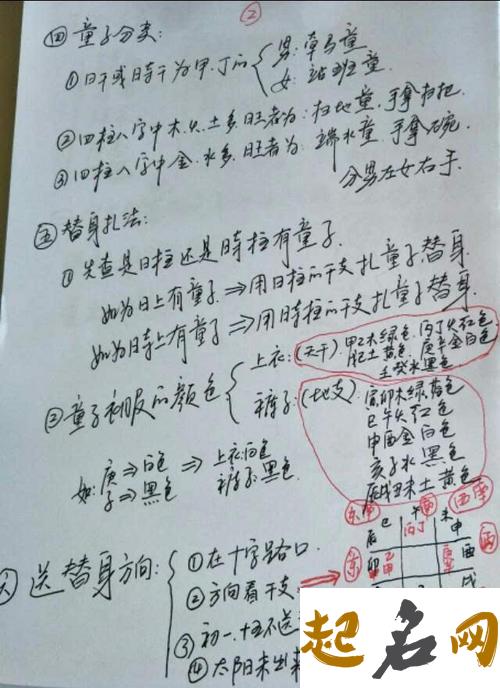 ②
四 童子分类：
①日干或时干为甲.丁的 { 男：牵马童
女：站班童.
②四柱八字中木.火.土多.旺者为：扫地童.手拿扫把
③四柱八字中金.水多.旺者为：端水童.手拿碗.
分男左女右手.
五 替身扎法：
①先查是日柱还是时柱有童子.
如为日上有童子⇒用日柱的干支扎童子替身
如为时上有童子⇒用时柱的干支扎童子替身.
上衣：(天干) 甲乙木绿色.丙丁火红色
戊己土黄色.庚辛金白色
壬癸水黑色
②童子衣服的颜色
裤子：(地支) 寅卯木绿蓝色
巳午火红色
申酉金白色
亥子水黑色
辰戌丑未土黄色
如：庚⇒白色 ⇒ 上衣白色
子⇒黑色 裤子黑色.
六 送替身方向：
①在十字路口.
②方向看干支.
③初一.十五不送
④太阳未出来
东南 南 西南
巳 午 未
辰 丙丁 申
东 卯 乙甲 庚辛 酉 西
戌
起名网